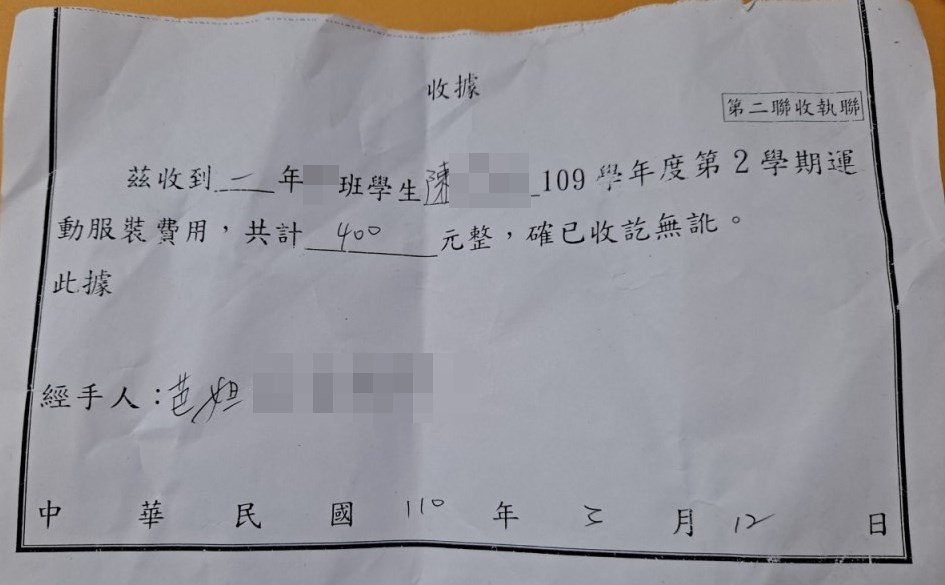 收據
第二聯收執聯
茲收到二年班學生陳109學年度第2學期運
動服裝費用，共計400元整，確已收訖無訛。
此據
經手人：芭妲
中華民國110年3月12日